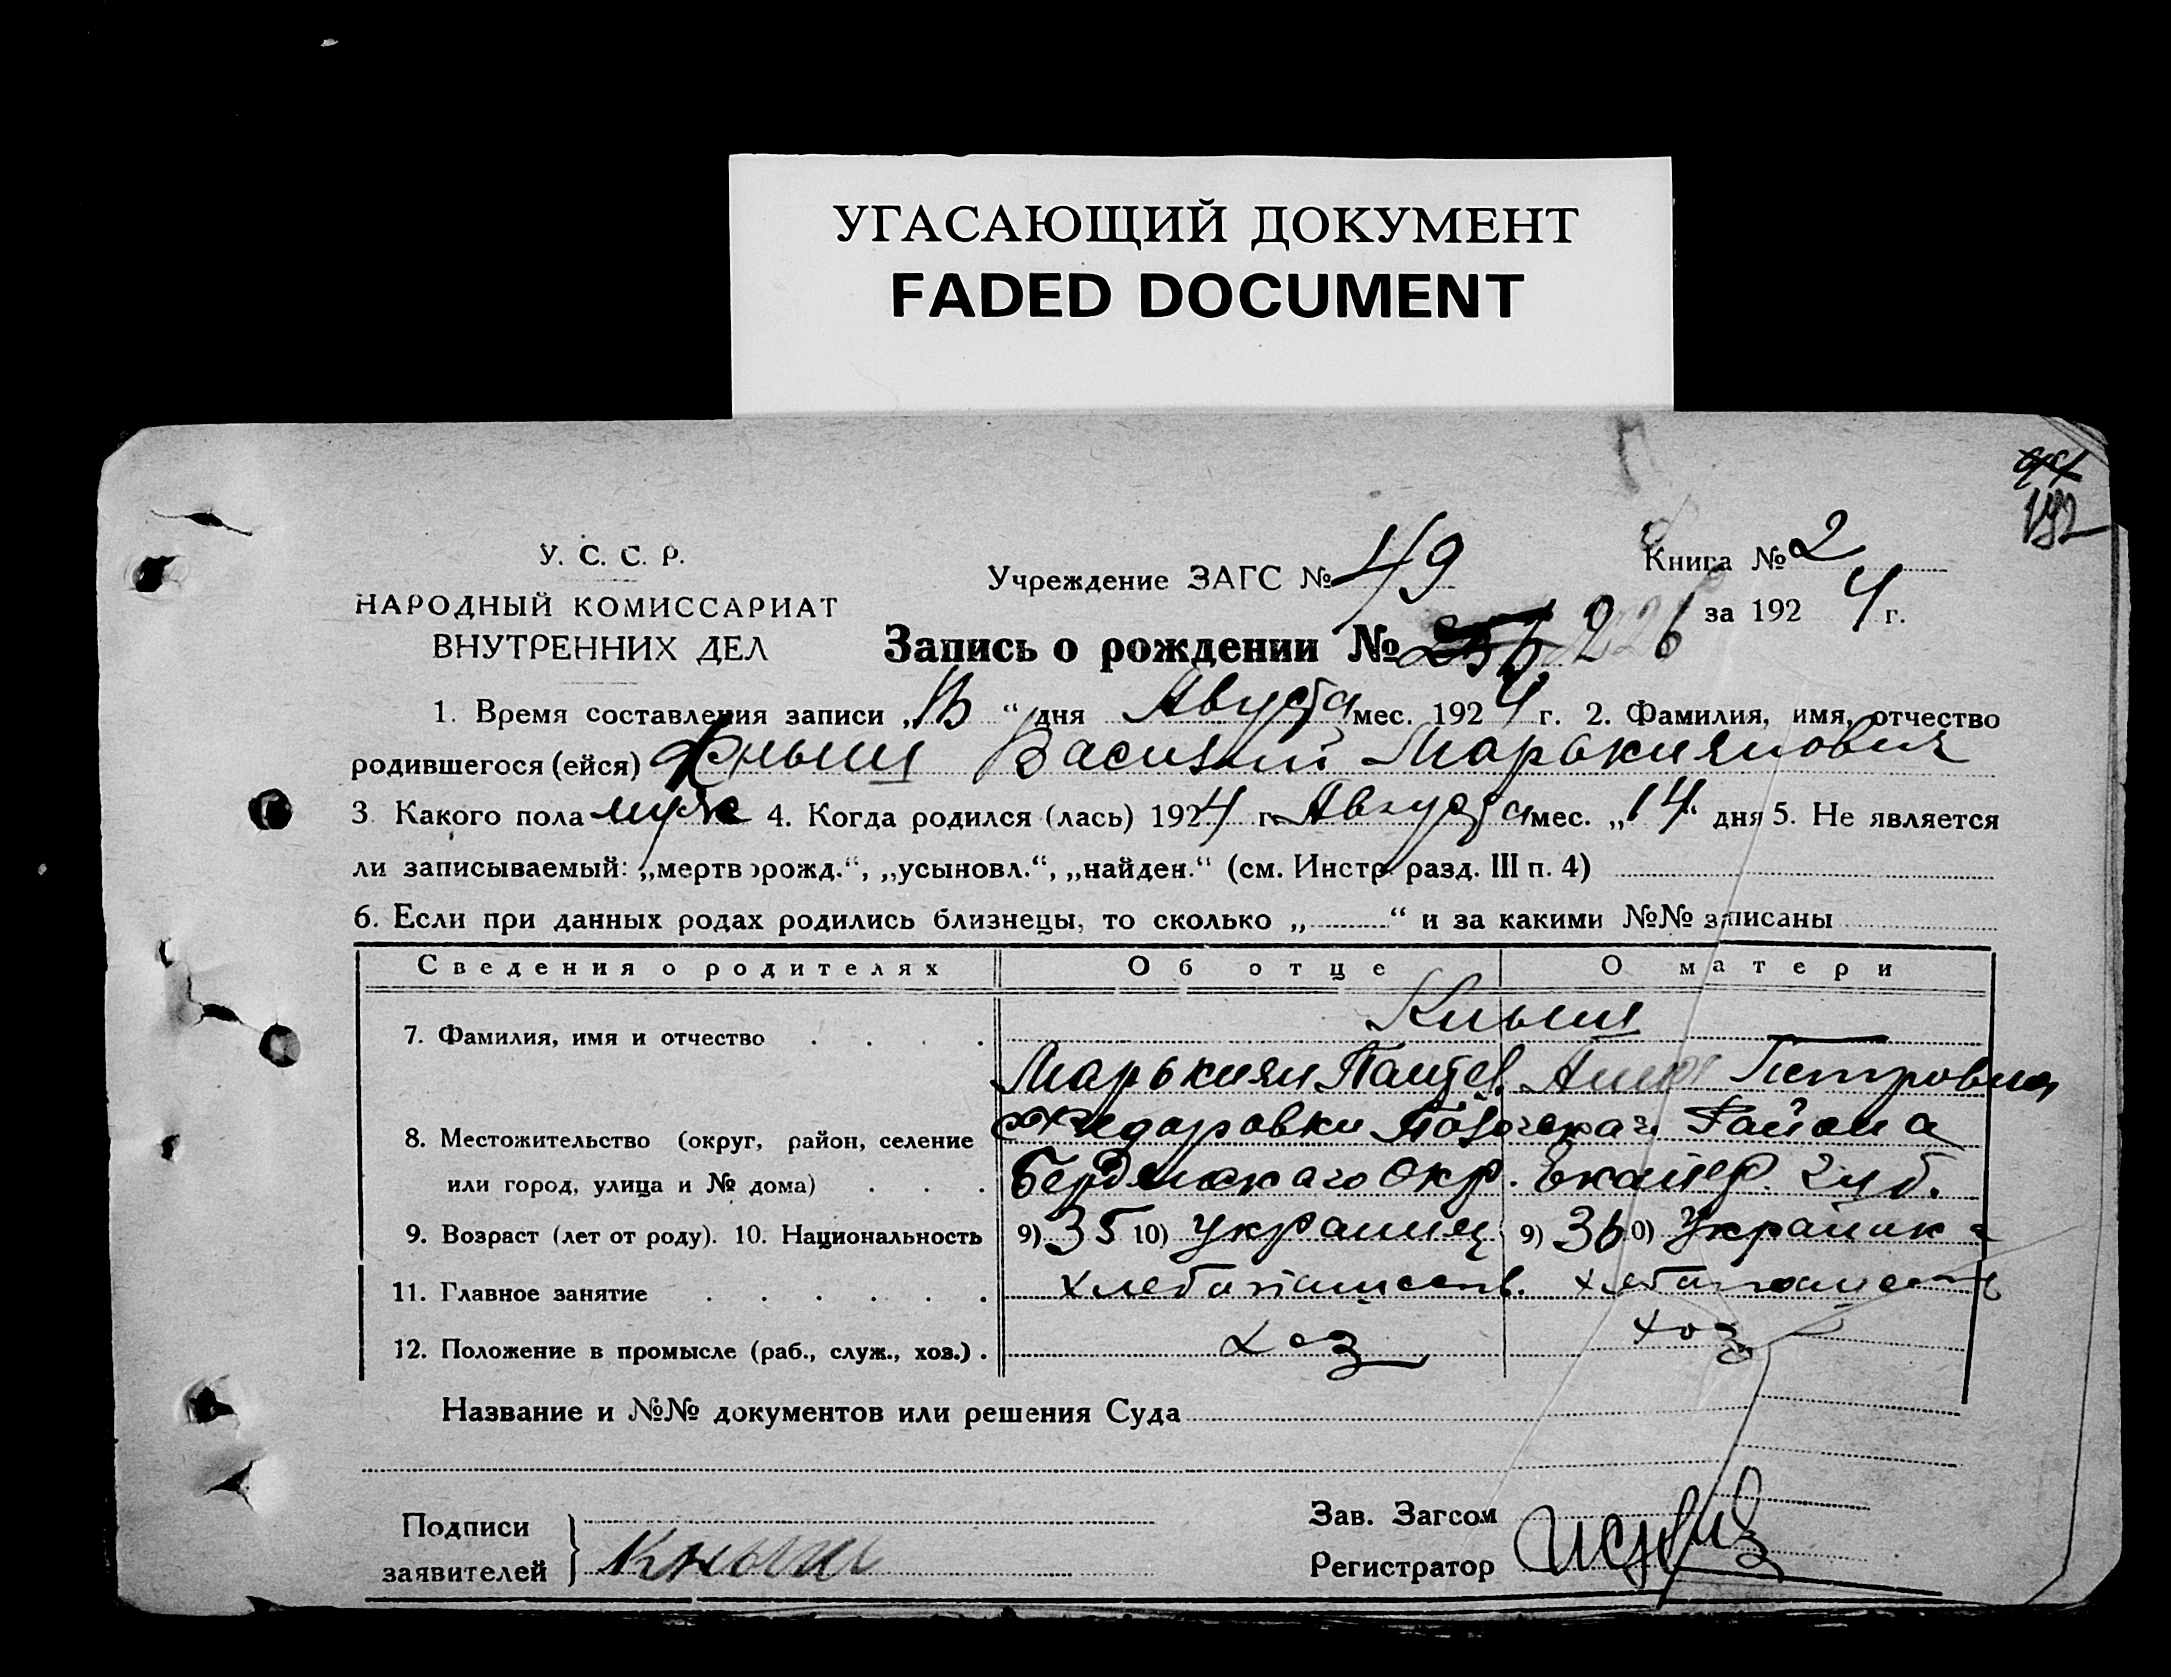 УГАСАЮЩИЙ ДОКУМЕНТ
FADED DOCUMENT
192
У. С. С. Р.
НАРОДНЫЙ КОМИССАРИАТ
ВНУТРЕННИХ ДЕЛ
Учреждение ЗАГС № 49
Книга № 2
за 1924 г.
Запись о рождении № 226
1. Время составления записи „ “ дня Августа мес. 1924 г. 2. Фамилия, имя, отчество
родившегося (ейся) Кныш Василий Марькиянович
3. Какого пола муж 4. Когда родился (лась) 1924 г. Августа мес. „14“ дня 5. Не является
ли записываемый: „мертворожд.“, „усыновл.“, „найден.“ (см. Инстр. разд. III п. 4)
6. Если при данных родах родились близнецы, то сколько „ “ и за какими №№ записаны
Сведения о родителях Об отце О матери
7. Фамилия, имя и отчество Кныш
Марькиян Пантел. Анна Петровна
8. Местожительство (округ, район, селение Района
или город, улица и № дома) Бердянскаго Окр. Екатер. губ.
9. Возраст (лет от роду). 10. Национальность 9) 35 10) украинец 9) 36 10) Украинка
11. Главное занятие хлебопашеств. хлебопашеств
12. Положение в промысле (раб., служ., хоз.) хоз хоз
Название и №№ документов или решения Суда
Подписи
заявителей } Кныш
Зав. Загсом
Регистратор